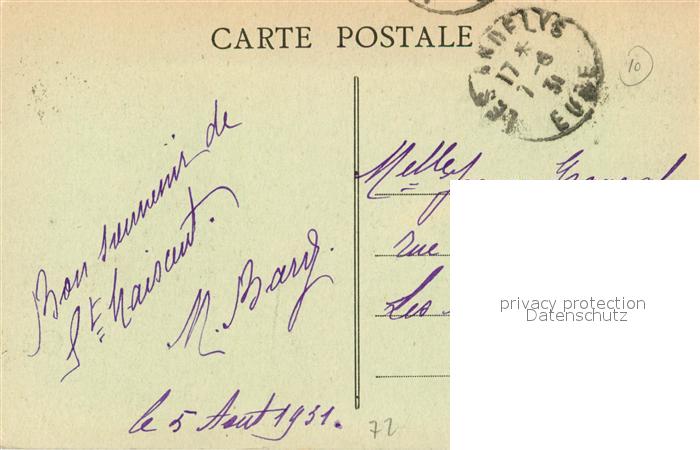 CARTE POSTALE
LES ANDELYS
17 *
7 - 8
31
EURE
10
Bon souvenir de
St Maixent.
M. Bary.
le 5 Août 1931.
72
Melle
rue
Les
privacy protection
Datenschutz